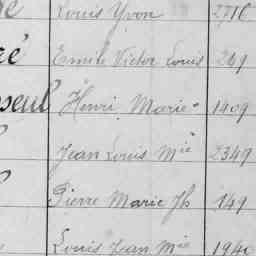 Louis Yvon 2716
Emile Victor Louis 249
seul Henri Marie 1409
Jean Louis Mie 2349
Pierre Marie Jh 149
Louis Jean Mie 1940